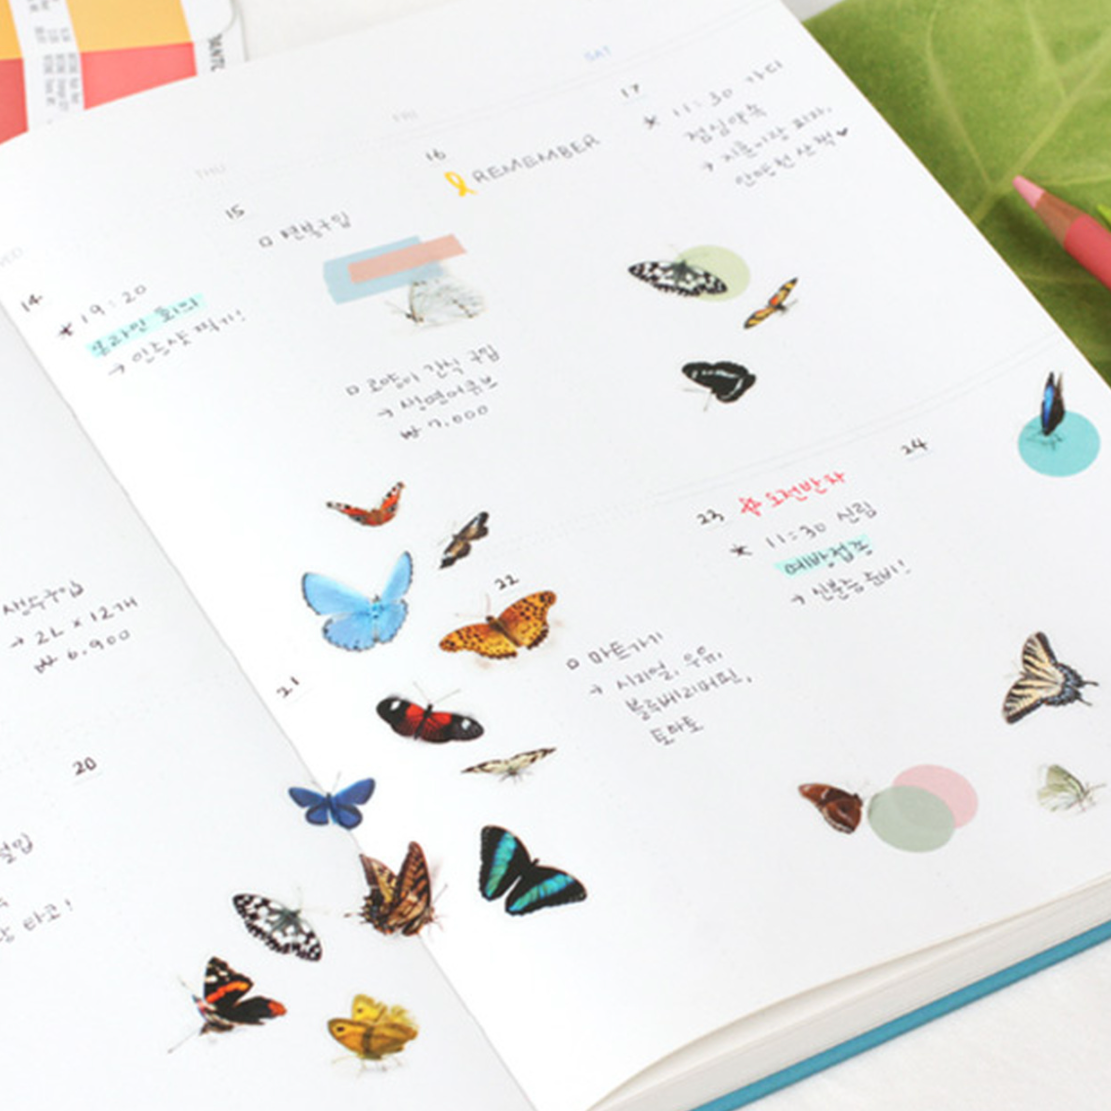 SAT
FRI
THU
14
* 19:20
온라인 회의
→ 인증샷 찍기!
15
□ 텐블구입
□ 고양이 간식 구입
→ 생연어큐브
₩ 7,000
16
REMEMBER
17
* 11:30 가디
점심약속
→ 지훈이랑 피자,
안양천 산책♥
생수구입
→ 2L x 12개
₩ 6,900
20
21
22
□ 마트가기
→ 시리얼, 우유,
블루베리머핀,
토마토
23
☆ 도전반자
* 11:30 신림
예방접종
→ 신분증 준비!
24
타고!